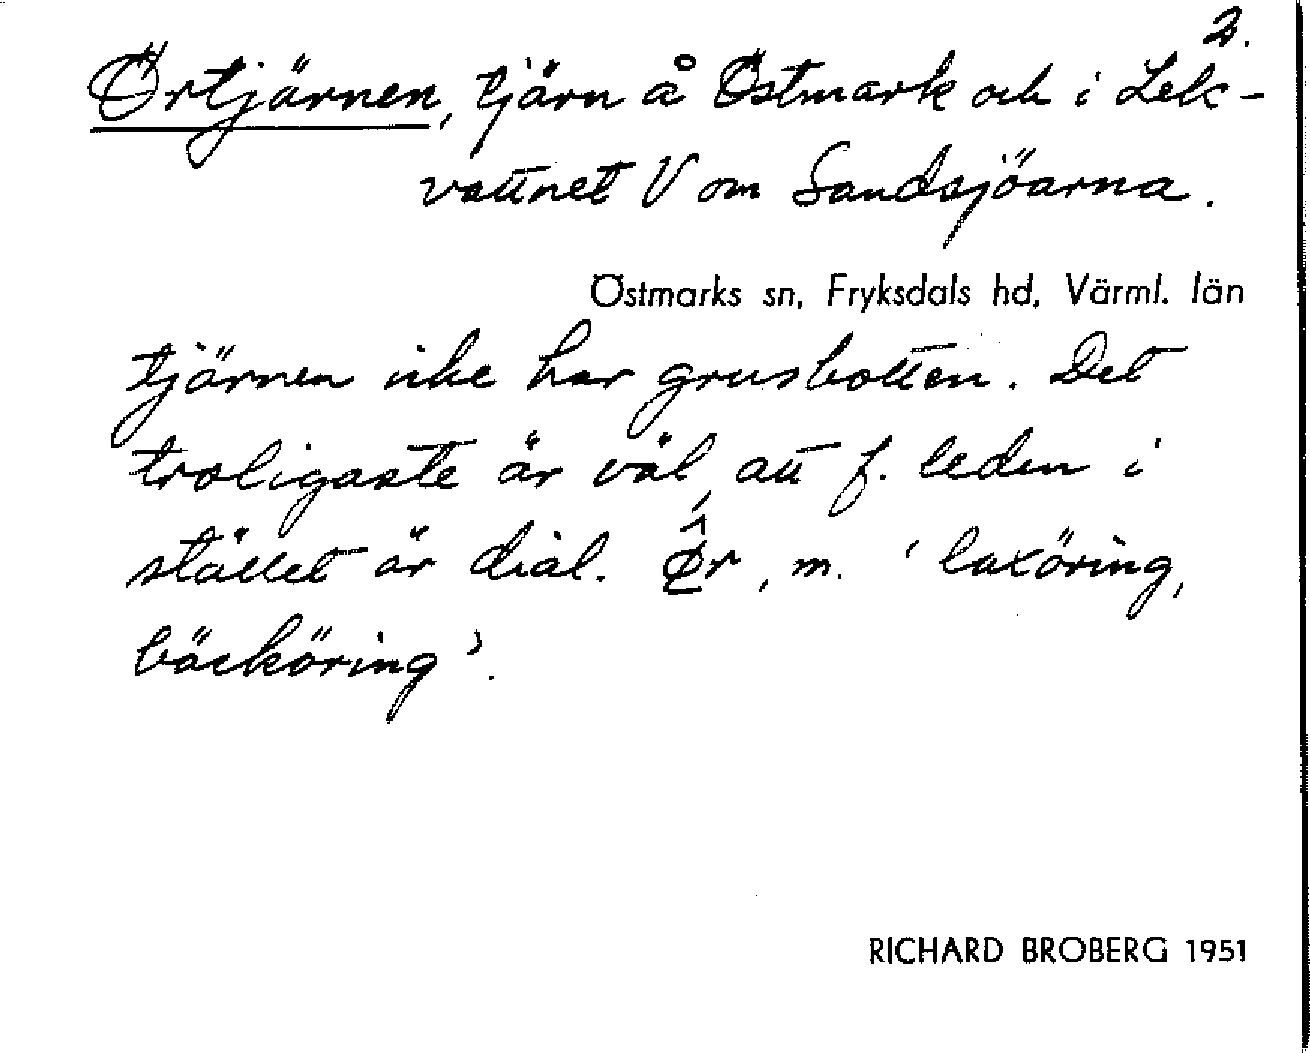 2.
Örtjärnen, tjärn å Östmark och i Lek-
vattnet V om Sandsjöarna.
Östmarks sn, Fryksdals hd, Värml. län
tjärnen icke har grusbotten. Det
troligaste är väl, att f. leden i
stället är dial. ø̂r, m. 'laxöring,
bäcköring'.
RICHARD BROBERG 1951